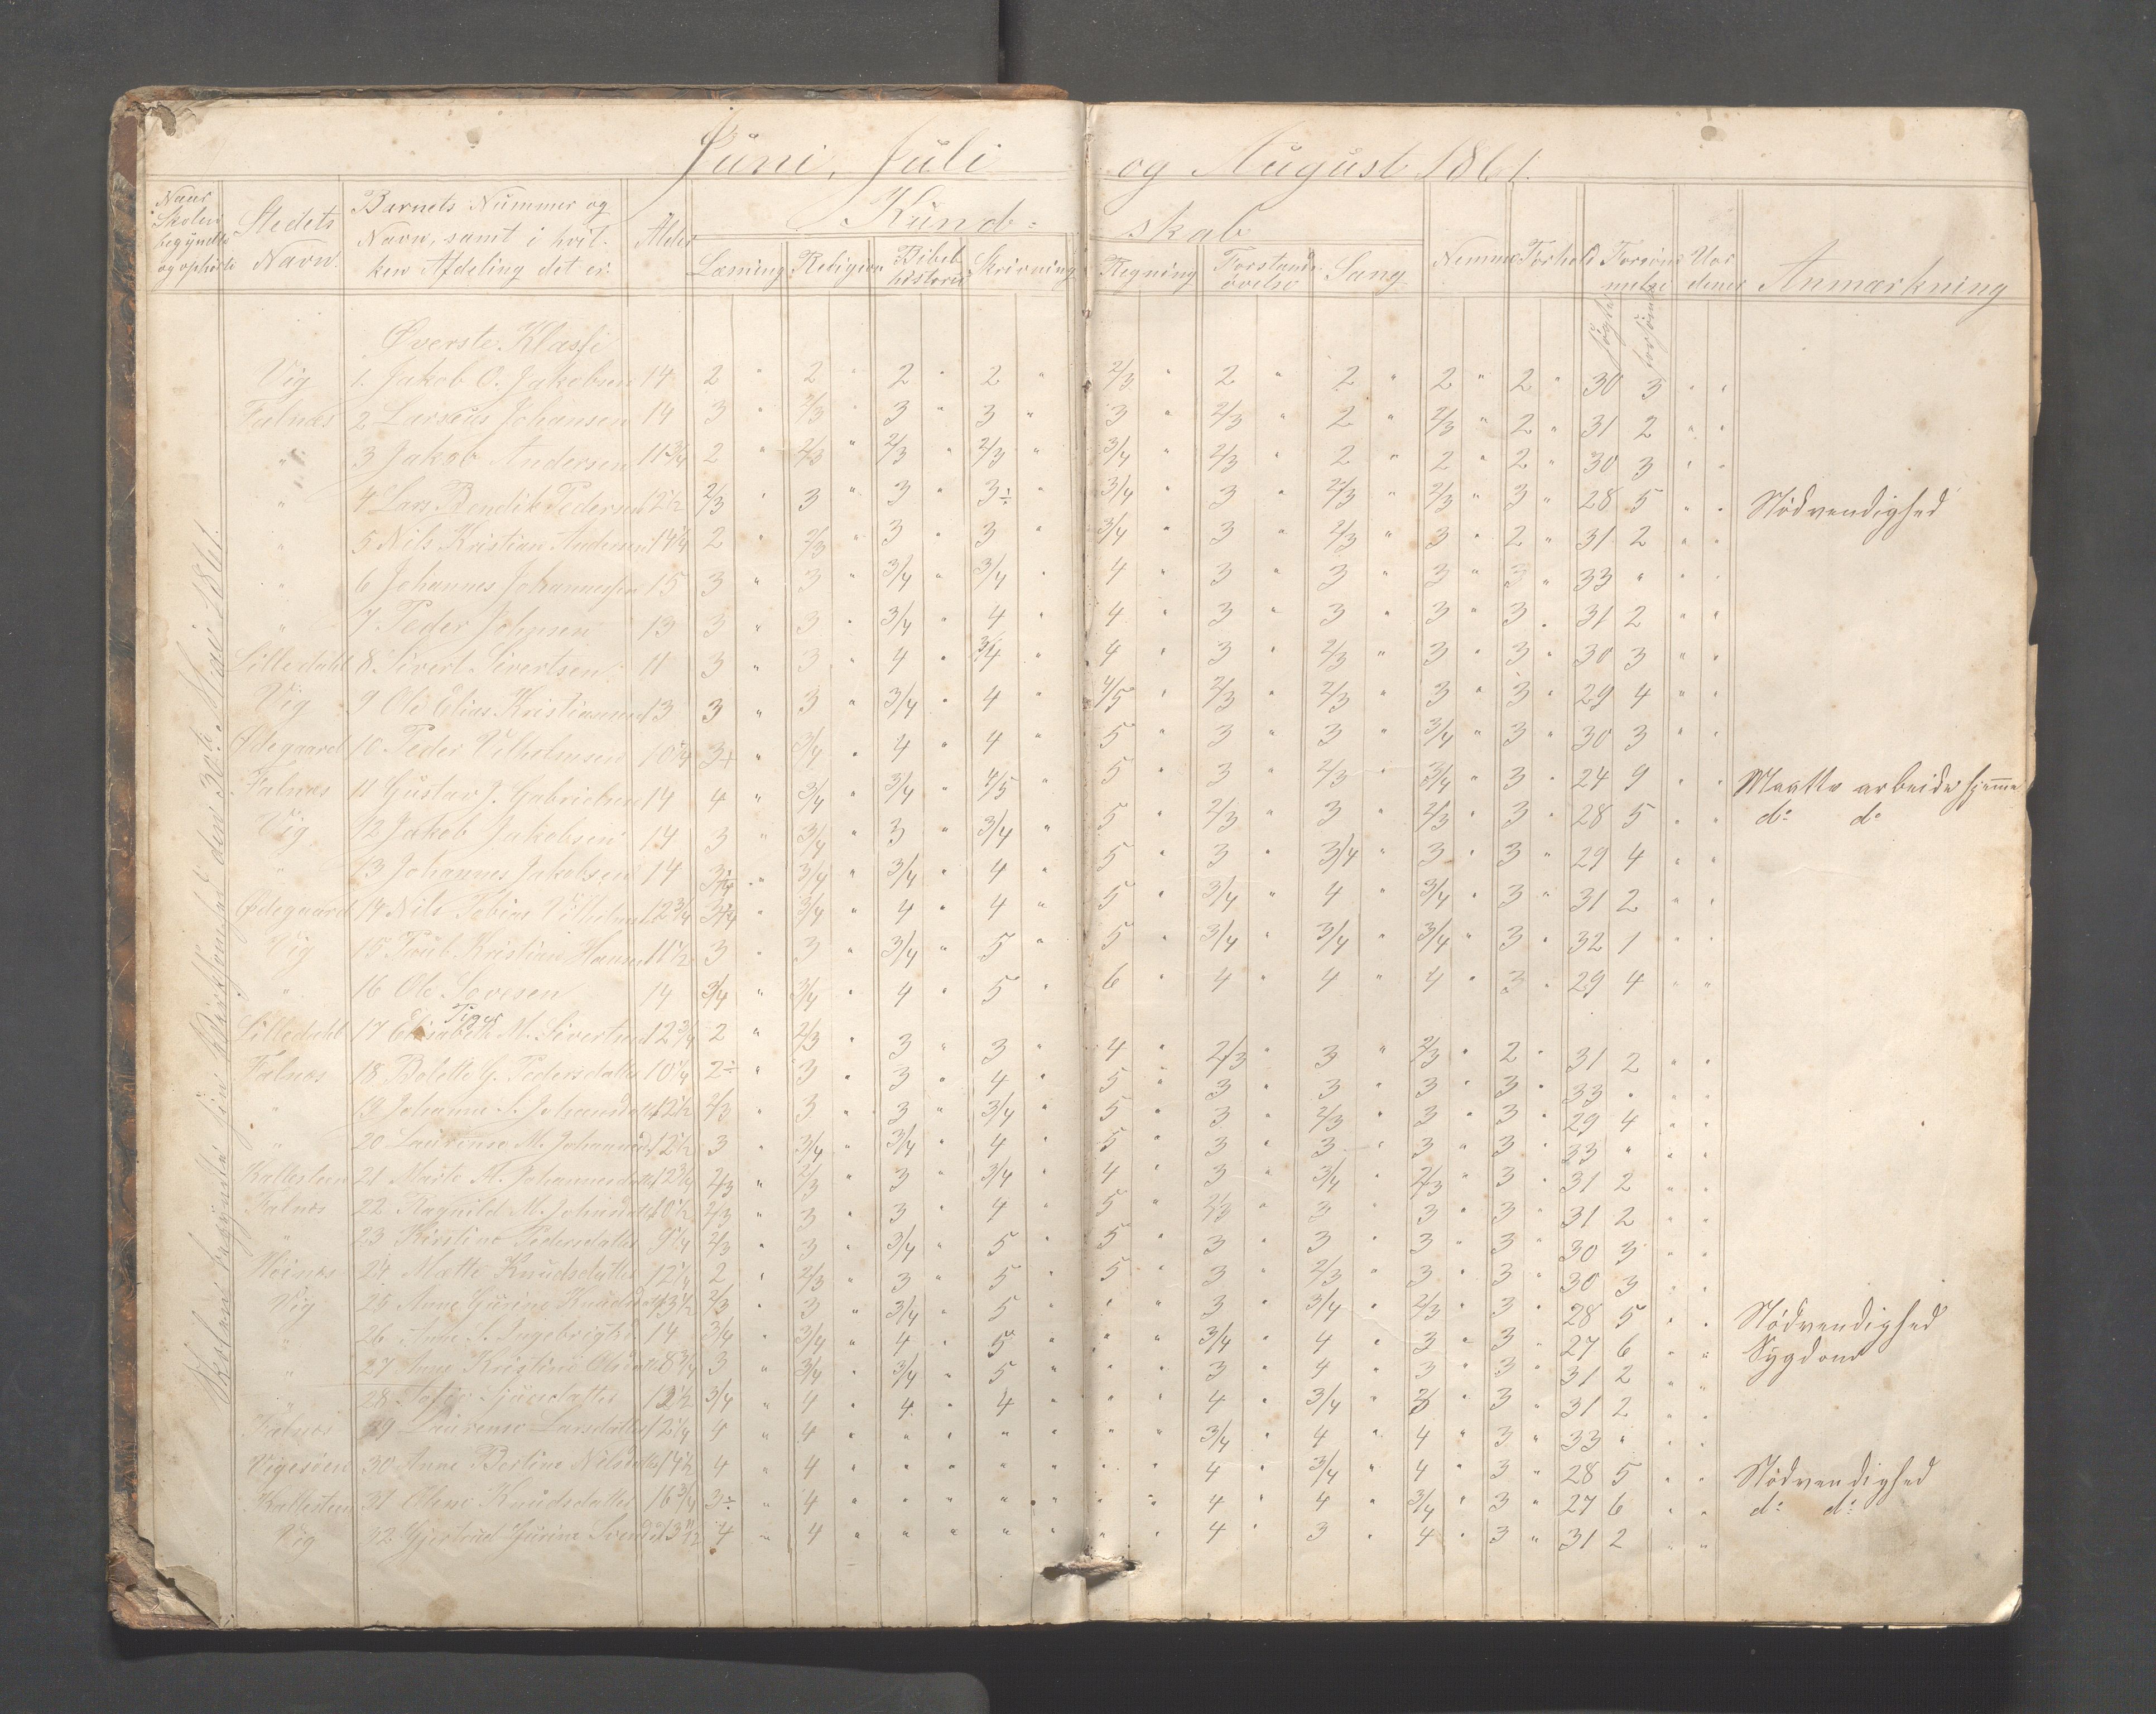 Juni, Juli og August 1861.
Naar Skolen begyndte og ophörte | Stedets Navn. | Barnets Nummer og Navn, samt i hvilken Afdeling det er. | Alder | Kundskab | Nemme | Forhold | Forsömmelse | Uordener | Anmærkning
Læsning | Religion | Bibelhistorie | Skrivning | Regning | Forstandsövelse | Sang | søgte | forsömte
Øverste Klasse
Vig 1. Jakob O. Jakobsen 14 2 " 2 " 2 " 2 " 2/3 " 2 " 2 " 2 " 2 " 30 3 " "
Falnæs 2 Larseus Johansen 14 3 " 2/3 " 3 " 3 " 3 " 2/3 " 2 " 2/3 " 2 " 31 2 " "
" 3 Jakob Andersen 11 3/4 2 " 2/3 " 2/3 " 2/3 " 3/4 " 2/3 " 2 " 2 " 2 " 30 3 " "
" 4 Lars Bendik Pedersen 12 1/2 2/3 " 3 " 3 " 3÷ " 3/4 " 3 " 2/3 " 2/3 " 3 " 28 5 " " Nödvendighed
" 5 Nils Kristian Andersen 14 1/4 2 " 2/3 " 3 " 3 " 3/4 " 3 " 2/3 " 3 " 2 " 31 2 " "
" 6 Johannes Johannessen 15 3 " 3 " 3/4 " 3/4 " 4 " 3 " 3 " 3 " 3 " 33 " " "
" 7 Peder Johnsen 13 3 " 3 " 3/4 " 4 " 4 " 3 " 3 " 3 " 3 " 31 2 " "
Lilledahl 8. Sivert Sivertsen 11 3 " 3 " 4 " 3/4 " 4 " 3 " 2/3 " 3 " 3 " 30 3 " "
Vig 9 Ole Elias Kristiansen 13 3 " 3 " 3/4 " 4 " 4/5 " 2/3 " 2/3 " 3 " 3 " 29 4 " "
Ødegaard 10 Peder Vilhelmsen 10 1/4 3+ " 3/4 " 4 " 4 " 5 " 3 " 3 " 3/4 " 3 " 30 3 " "
Falnæs 11 Gustav J. Gabrielsen 14 4 " 3/4 " 3/4 " 4/5 " 5 " 3 " 2/3 " 3/4 " 3 " 24 9 " " Maatte arbeide hjemme
Vig 12 Jakob Jakobsen 14 3 " 3/4 " 3 " 3/4 " 5 " 2/3 " 3 " 2/3 " 3 " 28 5 " " do do
" 13 Johannes Jakobsen 14 3/4 " 3/4 " 3/4 " 4 " 5 " 3 " 3/4 " 3 " 3 " 29 4 " "
Ødegaard 14 Nils Tobias Vilhelmsen 12 3/4 3/4 " 3/4 " 4 " 4 " 5 " 3/4 " 4 " 3/4 " 3 " 31 2 " "
Vig 15 Kristian Hansen 11 1/2 3 " 3 " 3/4 " 5 " 5 " 3/4 " 3/4 " 3/4 " 3 " 32 1 " "
" 16 Ole Sevesen 14 3/4 " 3/4 " 4 " 5 " 6 " 4 " 4 " 4 " 3 " 29 4 " "
Piger
Lilledahl 17 Elisabeth M. Sivertsd 12 3/4 2 " 2/3 " 3 " 3 " 4 " 2/3 " 3 " 2/3 " 2 " 31 2 " "
Falnæs 18 Bolette G. Pedersdatter 10 1/4 2÷ " 3 " 3 " 4 " 5 " 3 " 3 " 3 " 3 " 33 " " "
" 19 Johanne S. Johansdatter 12 1/2 2/3 " 3 " 3 " 3/4 " 5 " 3 " 2/3 " 3 " 3 " 29 4 " "
" 20 Laurense M. Johannesd 12 1/2 3 " 3/4 " 3/4 " 4 " 5 " 3 " 3 " 3 " 3 " 33 " " "
Kallesteen 21 Marte M. Johannesdatter 12 3/4 2/3 " 2/3 " 3 " 3/4 " 4 " 3 " 3/4 " 2/3 " 3 " 31 2 " "
Falnæs 22 Ragnild M. Johnsdatter 10 1/2 2/3 " 3 " 3 " 4 " 5 " 2/3 " 3 " 3 " 3 " 31 2 " "
" 23 Kirstine Pedersdatter 9 1/4 2/3 " 3 " 3/4 " 5 " 5 " 3 " 3 " 3 " 3 " 30 3 " "
Höinæs 24 Mette Knudsdatter 12 1/4 2 " 2/3 " 3 " 5 " 5 " 3 " 2/3 " 3 " 3 " 30 3 " "
Vig 25 Anne Gurine Knudsdatter 13 1/2 2/3 " 3 " 3/4 " 5 " " " 3 " 3/4 " 2/3 " 3 " 28 5 " " Nödvendighed
" 26 Anne S. Ingebrigtsd. 14 3/4 " 3/4 " 4 " 5 " " " 3/4 " 4 " 3 " 3 " 27 6 " " Sygdom
" 27 Anne Kristine Olsdatter 8 3/4 3 " 3/4 " 3/4 " 5 " " " 3 " 4 " 3 " 3 " 31 2 " "
" 28 Sofie datter 12 1/2 3/4 " 4 " 4 " 4 " " " 4 " 3/4 " 3 " 3 " 31 2 " "
Falnæs 29 Laurense Larsdatter 12 1/4 4 " 4 " " " " " " " 3/4 " 4 " 4 " 3 " 33 " " "
Vigesöen 30 Anne Bertine Nilsdatter 14 1/2 4 " 4 " " " " " " " 4 " 3/4 " 4 " 3 " 28 5 " " Nödvendighed
Kallesteen 31 Olene Knudsdatter 16 3/4 3÷ " 4 " " " " " " " 4 " 4 " 3/4 " 3 " 27 6 " " do do
Vig 32 Gjertrud Gurine 13 1/2 4 " 4 " " " " " " " 4 " 3 " 4 " 3 " 31 2 " "
Skolen begyndte den 30te Mai 1861.